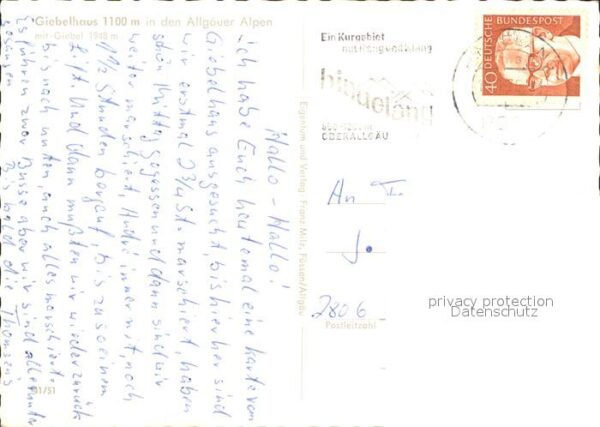 Giebelhaus 1100 m in den Allgäuer Alpen
mit Giebel 1948 m
Hallo - Hallo!
ich habe Euch heut mal eine Karte vom
Giebelhaus ausgesucht, bis hierher sind
wir erstmal 2 3/4 St. marschiert, haben
schön Mittag gegessen und dann sind wir
weiter marschiert, André immer mit, noch
1 1/2 Stunden bergauf, bis zu so einem
Lift. Und dann mußten wir wieder zurück
bis nach unten, auch alles marschiert.
Es führen zwar Busse aber wir sind alle
gelaufen. Bis bald die
31/51
Eigentum und Verlag: Franz Milz, Füssen/Allgäu
Ein Kurgebiet
mit Rang und Klang
hindelang
OBERALLGÄU
40 DEUTSCHE BUNDESPOST
An
J.
2806
Postleitzahl
privacy protection
Datenschutz